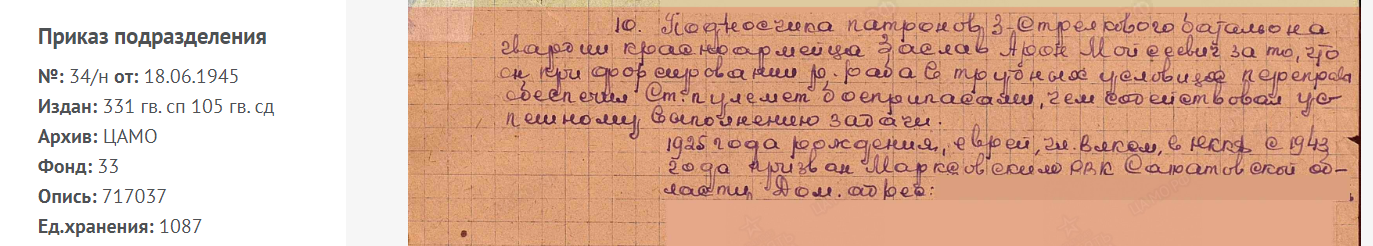 Приказ подразделения
№: 34/н от: 18.06.1945
Издан: 331 гв. сп 105 гв. сд
Архив: ЦАМО
Фонд: 33
Опись: 717037
Ед.хранения: 1087
10. Подносчика патронов 3-Стрелкового баталиона
гвардии красноармейца Заслав Арон Мойсеевич за то, что
он при форсировании р. раба в трудных условиях переправы
обеспечил Ст. пулемет боеприпасами, чем содействовал ус-
пешному выполнению задачи.
1925 года рождения, еврей, чл. Влксм, в РККА с 1943
года призван Марксовским РВК Саратовской об-
ласти, Дом. адрес: